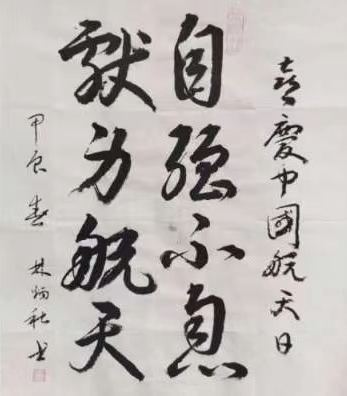 喜慶中國航天日
自強不息
獻身航天
甲辰春 林炳社書